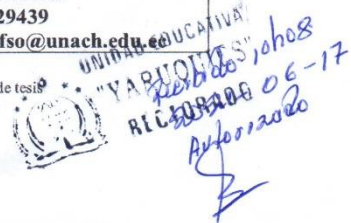 29439
fso@unach.edu.ec
de tesis
UNIDAD EDUCATIVA
"YARUQUIES"
RECTORADO
Recibido 10h08
06-17
Autorizado